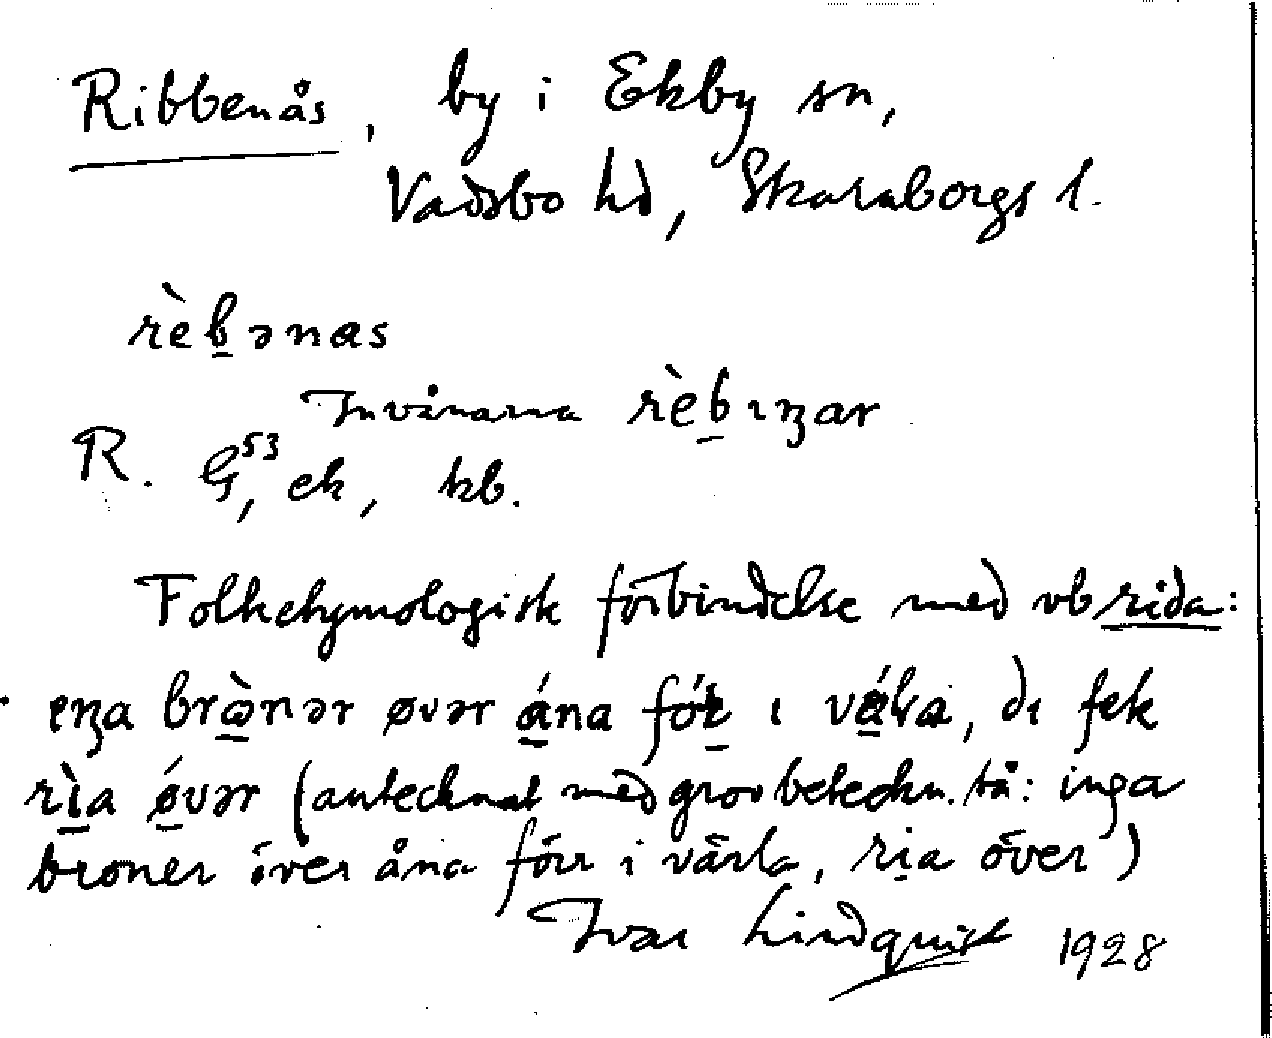 Ribbenås, by i Ekby sn,
Vadsbo hd, Skaraborgs l.
rèb̠ənas
Invånarna rèb̠ıŋar
R. G⁵³, ek, kb.
Folketymologisk förbindelse med vb rida:
eŋa brò̠nər øvər á̠na fó̠r ı vá̠la, dı fek
rì̠a ǿ̠vər (antecknat med grov beteckn. så: inga
broner över åna förr i värla, ri̠a över)
Ivar Lindquist 1928